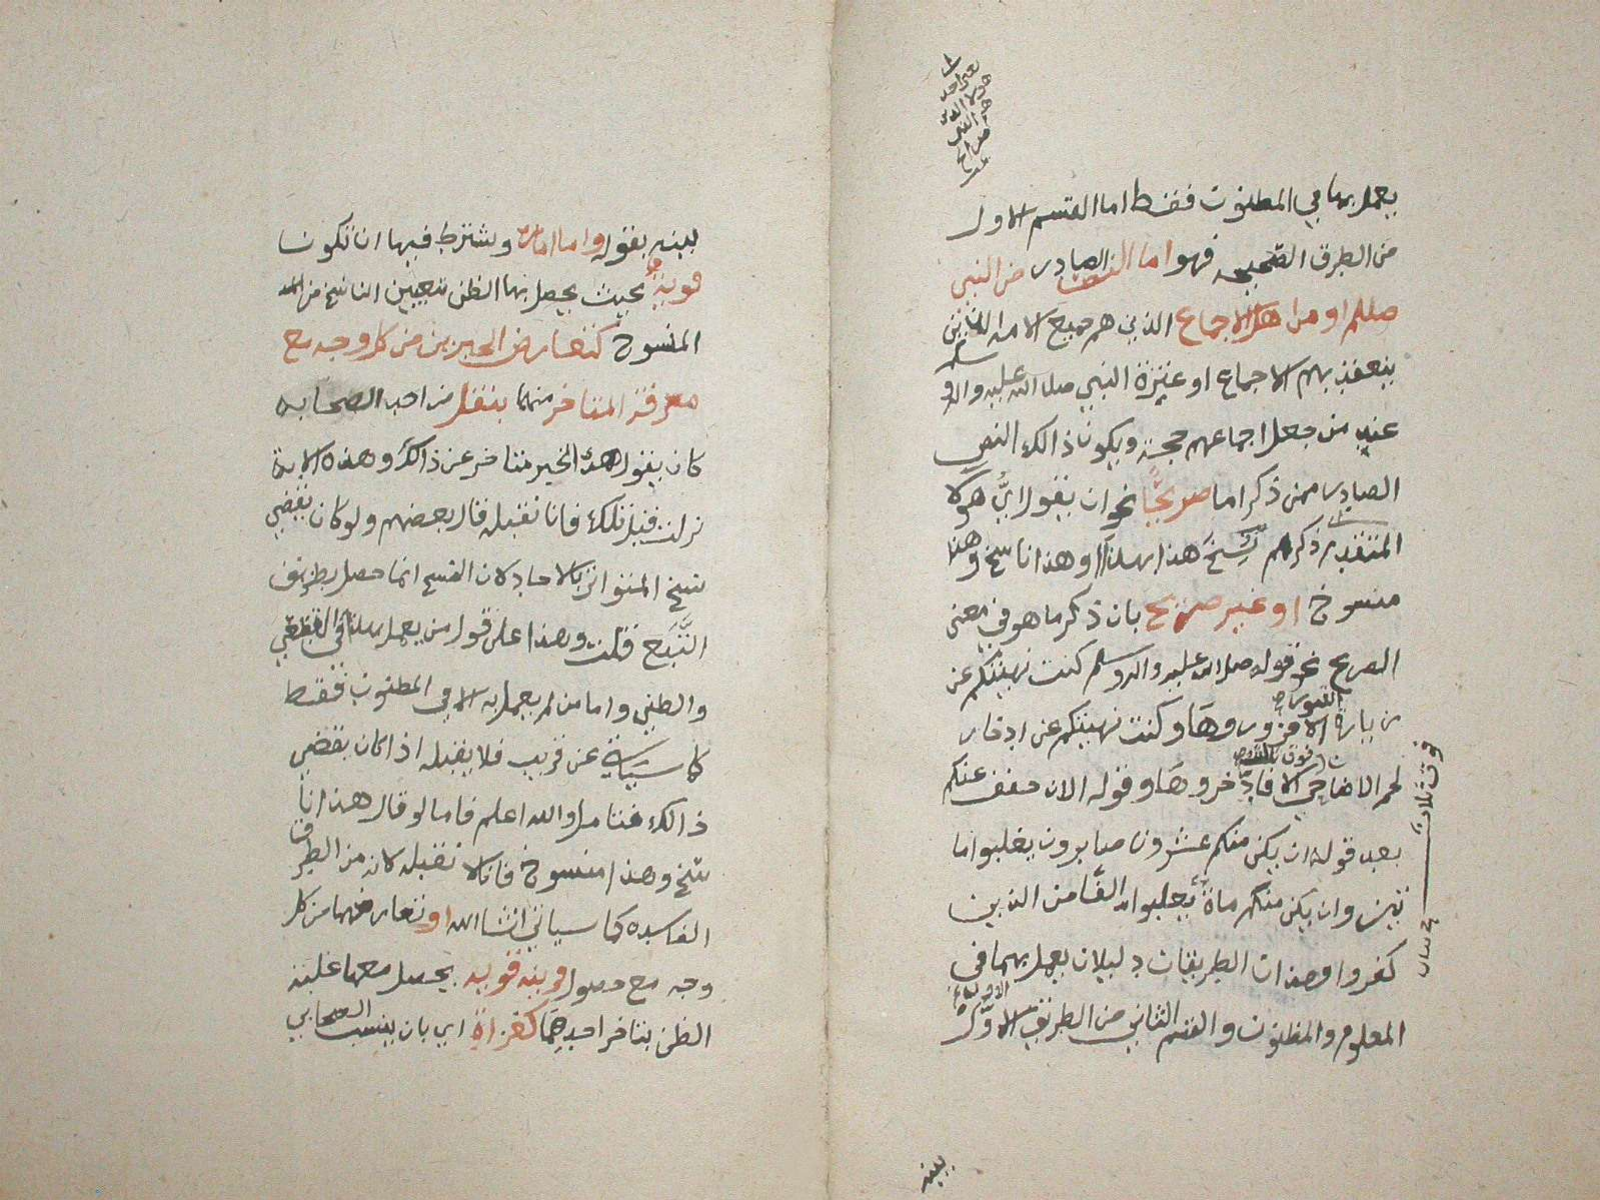 يعمل بهما في المظنون فقط اما القسم الاول
من الطرق الصحيحه فهو اما النص الصادر من النبي
صللم او من اهل الاجماع الذين هم جميع الامه الذين
ينعقد بهم الاجماع او عترة النبي صلى الله عليه واله وسلم
عند من جعل اجماعهم حجة ويكون ذالك النص
الصادر ممن ذكر اما صريحًا نحو ان يقول ايُّ هولا
المتقدم ذكرهم نسخ هذا بهذا او هذا ناسخ وهذا
منسوخ او غير صريح بان ذكر ما هو في معنى
الصريح نحو قوله صلى الله عليه واله وسلم كنت نهيتكم عن
زيارة القبور الا فزوروهَا وكنت نهيتكم عن ادخار
لحم الاضاحي فوق ثلاث الا فادخروهَا وقوله الان خفف عنكم
بعد قوله ان يكن منكم عشرون صابرون يغلبوا ما
ئتين وان يكن منكم مائة يغلبوا الفًا من الذين
كفروا وهذان الطريقان دليلان يعمل بهما في
المعلوم والمظنون والقسم الثاني من الطريق الاوَّل
فوق ثلاث
بينه
بينه بقوله واما اماره ويشترط فيها ان تكون
قويةٌ بحيث يحصل بها الظن بتعيين الناسخ من
المنسوخ كتعارض الخبرين من كل وجه مع
معرفة المتاخر منهما بنقل من احد الصحابه
كان يقول هذا الخبر متاخر عن ذالك وهذه الاية
نزلت قبل تلك فانا نقبله قال بعضهم ولو كان يقتضي
نسخ المتواتر بالاحاد لان النسخ انما حصل بطريق
التَّبَع قلت وهذا على قول من يعمل بهذا في القطعي
والظني واما من لم يعمل به الا في المظنون فقط
كما سيَاتي عن قريب فلا يقبله اذا كان يقتضي
ذالك فتامل والله اعلم فاما لو قال هذا نا
سخ وهذا منسوخ فانا لا نقبله لانه من الطرق
الفاسده كما سياتي انشا الله او تعارضهما من كل
وجه مع حصول قرينه قويه يحصل معها غلبة
الظن بتاخر احدهمَا كغزاةٍ اي بان ينسب الصحابي